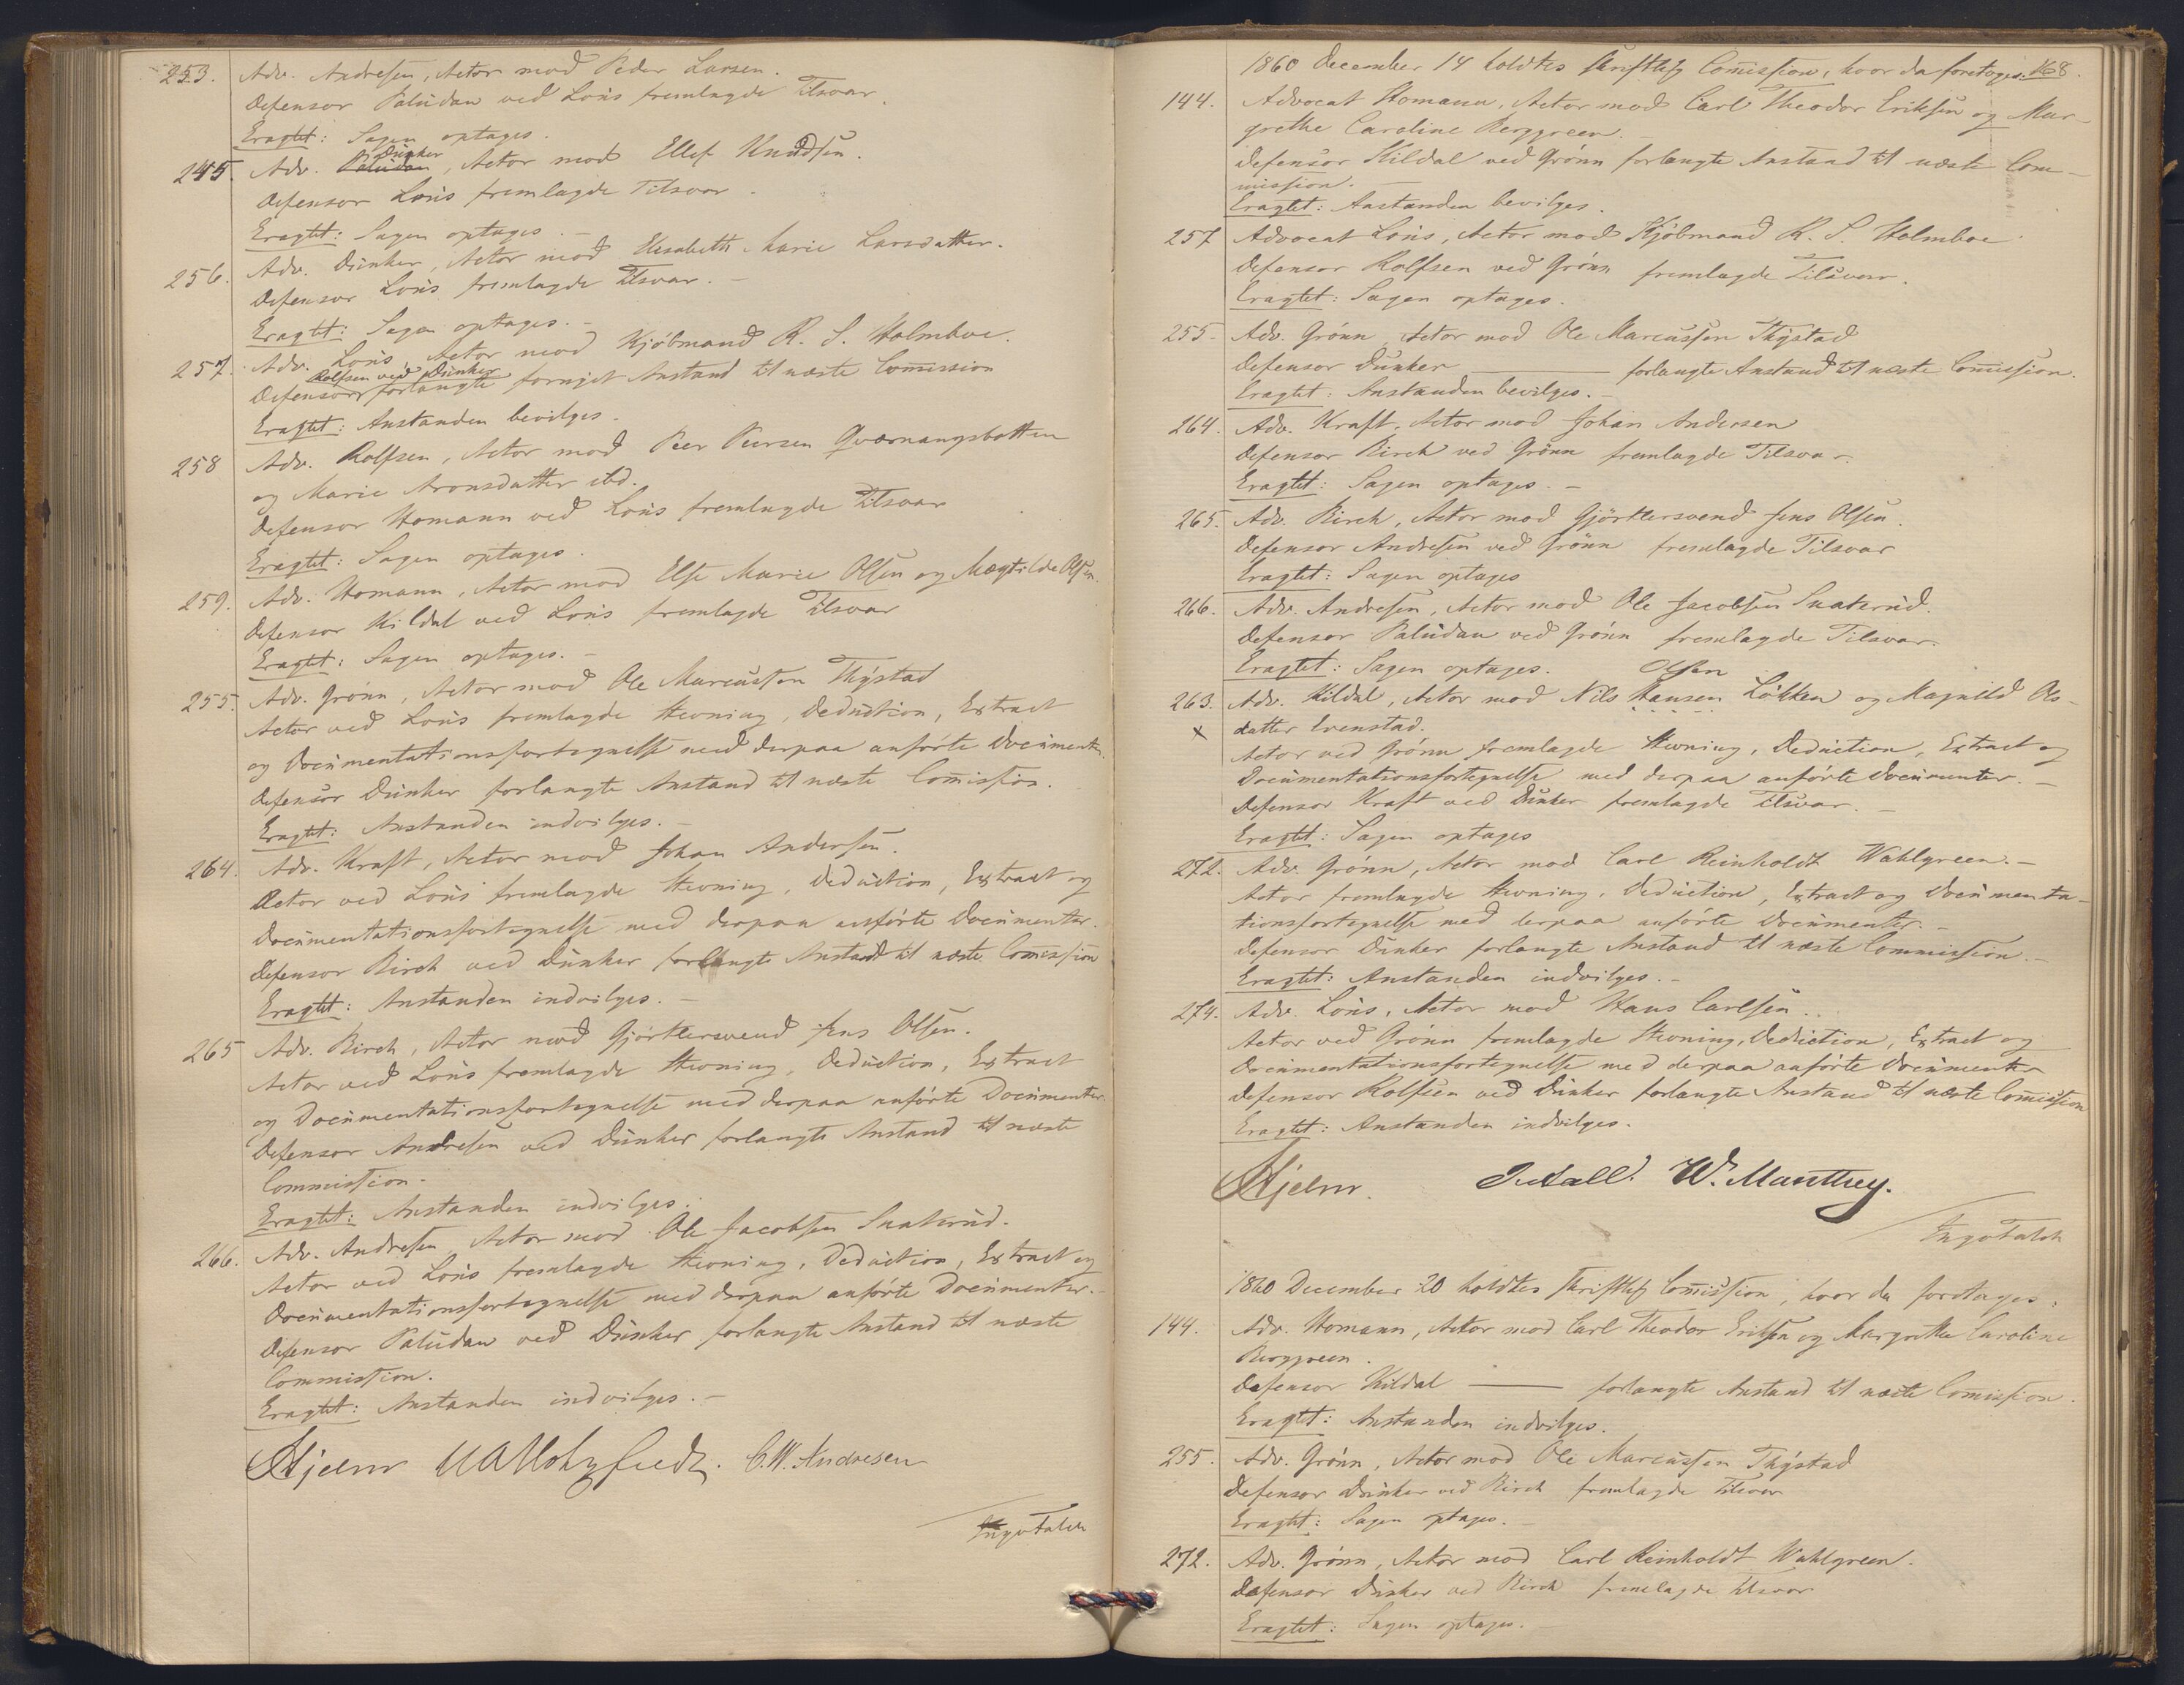 253. Adv. Andresen, Actor mod Peder Larsen.
Defensor Paludan ved Lous fremlagde Tilsvar.
Eragtet: Sagen optages.
245. Adv. Paludan Dunker, Actor mod Ellef Knudsen.
Defensor Lous fremlagde Tilsvar.
Eragtet: Sagen optages. –
256. Adv. Dunker, Actor mod Elisabeth Marie Larsdatter.
Defensor Lous fremlagde Tilsvar. –
Eragtet: Sagen optages. –
257. Adv. Lous, Actor mod Kjöbmand R. S. Holmboe.
Defensor Rolfsen ved Dunker forlangte fornyet Anstand til næste Comission
Eragtet: Anstanden bevilges.
258 Adv. Rolfsen, Actor mod Peer Peersen Qvænangsbotten
og Marie Aronsdatter ibd.
Defensor Homann ved Lous fremlagde Tilsvar
Eragtet: Sagen optages.
259. Adv. Homann, Actor mod Else Marie Olsen og Magtilde Olsen.
Defensor Kildal ved Lous fremlagde Tilsvar
Eragtet: Sagen optages. –
255. Adv. Grönn, Actor mod Ole Marcussen Thystad
Actor ved Lous fremlagde Stevning, Deduction, Extract
og Documentationsfortegnelse med derpaa anförte Documenter.
Defensor Dunker forlangte Anstand til næste Comission.
Eragtet: Anstanden indvilges. –
264. Adv. Kraft, Actor mod Johan Andersen.
Actor ved Lous fremlagde Stevning, Deduction, Extract og
Documentationsfortegnelse med derpaa anförte Documenter.
Defensor Birch ved Dunker forlangte Anstand til næste Comission
Eragtet: Anstanden indvilges. –
265 Adv. Birch, Actor mod Gjörtlersvend Jens Olsen.
Actor ved Lous fremlagde Stevning, Deduction, Extract
og Documentationsfortegnelse med derpaa anförte Documenter.
Defensor Andresen ved Dunker forlangte Anstand til næste
Commission.
Eragtet: Anstanden indvilges.
266. Adv. Andresen Actor mod Ole Jacobsen Snaterud.
Actor ved Lous fremlagde Stevning, Deduction, Extract og
Documentationsfortegnelse med derpaa anförte Documenter.
Defensor Paludan ved Dunker forlangte Anstand til næste
Commission.
Eragtet: Anstanden indvilges. –
Hjelm C. W. Andresen
168.
1860 December 14 holdtes skriftlig Comission, hvor da foretoges:
144. Advocat Homann, Actor mod Carl Theodor Eriksen og Mar-
grethe Caroline Berggreen. –
Defensor Kildal ved Grönn forlangte Anstand til næste Com-
mission. –
Eragtet: Anstanden bevilges.
257 Advocat Lous, Actor mod Kjöbmand R. S. Holmboe
Defensor Rolfsen ved Grönn fremlagde Tilsvar.
Eragtet: Sagen optages.
255 – Adv. Grönn, Actor mod Ole Marcussen Thystad
Defensor Dunker ——— forlangte Anstand til næste Comission.
Eragtet: Anstanden bevilges. –
264. Adv. Kraft, Actor mod Johan Andersen
Defensor Birch ved Grönn fremlagde Tilsvar.
Eragtet: Sagen optages. –
265. Adv. Birch, Actor mod Gjörtlersvend Jens Olsen.
Defensor Andresen ved Grönn fremlagde Tilsvar
Eragtet: Sagen optages
266. Adv. Andresen, Actor mod Ole Jacobsen Snaterud.
Defensor Paludan ved Grönn fremlagde Tilsvar.
Eragtet: Sagen optages.
Olsen
263. Adv. Kildal, Actor mod Nils Hansen Lökken og Magnild Ols-
x datter Evenstad.
Actor ved Grönn fremlagde Stevning, Deduction, Extract og
Documentationsfortegnelse med derpaa anförte Documenter. –
Defensor Kraft ved Dunker fremlagde Tilsvar. –
Eragtet: Sagen optages
272. Adv. Grönn, Actor mod Carl Reinholdt Wahlgreen. –
Actor fremlagde Stevning, Deduction, Extract og Documenta-
tionsfortegnelse med derpaa anförte Documenter. –
Defensor Dunker forlangte Anstand til næste Commission. –
Eragtet: Anstanden indvilges. –
274. Adv. Lous, Actor mod Hans Carlsen.
Actor ved Grönn fremlagde Stevning, Deduction, Extract og
Documentationsfortegnelse med derpaa anförte Documenter
Defensor Rolfsen ved Dunker forlangte Anstand til næste Comission
Eragtet: Anstanden indvilges.
Hjelm. W. Manthey.
1860 December 20 holdtes skriftlig Comission, hvor da foretages:
144. Adv. Homann, Actor mod Carl Theodor Eriksen og Margrethe Caroline
Berggreen.
Defensor Kildal ——— forlangte Anstand til næste Comission.
Eragtet: Anstanden indvilges.
255. Adv. Grönn, Actor mod Ole Marcussen Thystad
Defensor Dunker ved Birch fremlagde Tilsvar
Eragtet: Sagen optages. –
272. Adv. Grönn, Actor mod Carl Reinholdt Wahlgreen.
Defensor Dunker ved Birch fremlagde Tilsvar
Eragtet: Sagen optages.